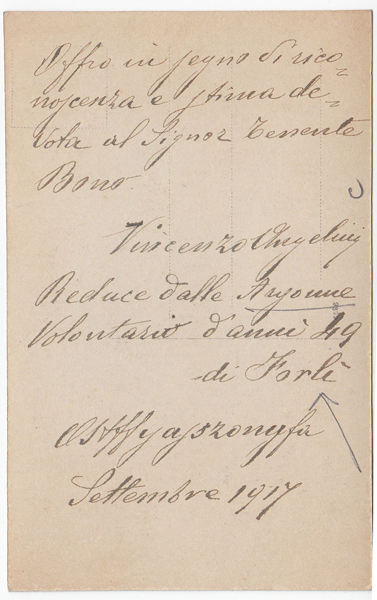 Offro in segno di rico=
noscenza e stima de=
vota al Signor Tenente
Bono.
Vincenzo Angelini
Reduce dalle Argonne
Volontario d'anni 49
di Forlì
Ostffyaszonyfa
Settembre 1917